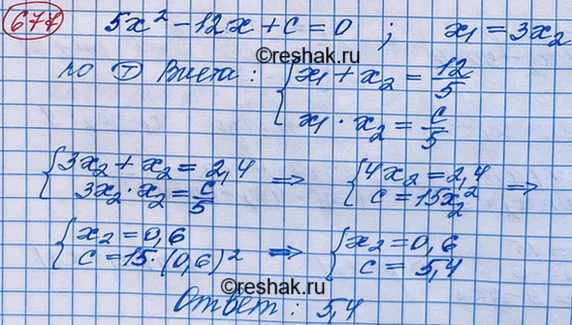 677 5x² - 12x + c = 0 ; x₁ = 3x₂
©reshak.ru
по Т Виета : { x₁ + x₂ = 12/5
x₁ · x₂ = c/5
{ 3x₂ + x₂ = 2,4 ⇒ { 4x₂ = 2,4 ⇒
3x₂ · x₂ = c/5 c = 15x₂²
{ x₂ = 0,6 ⇒ { x₂ = 0,6
c = 15 · (0,6)² c = 5,4
©reshak.ru
Ответ : 5,4